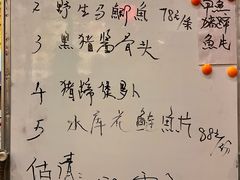 2 野生马鲫鱼 78元/条
3 黑猪酱骨头
4 猪蹄煲萝卜
5 水库花鲢鱼片 88元/份
估清
黑鱼
鱼片